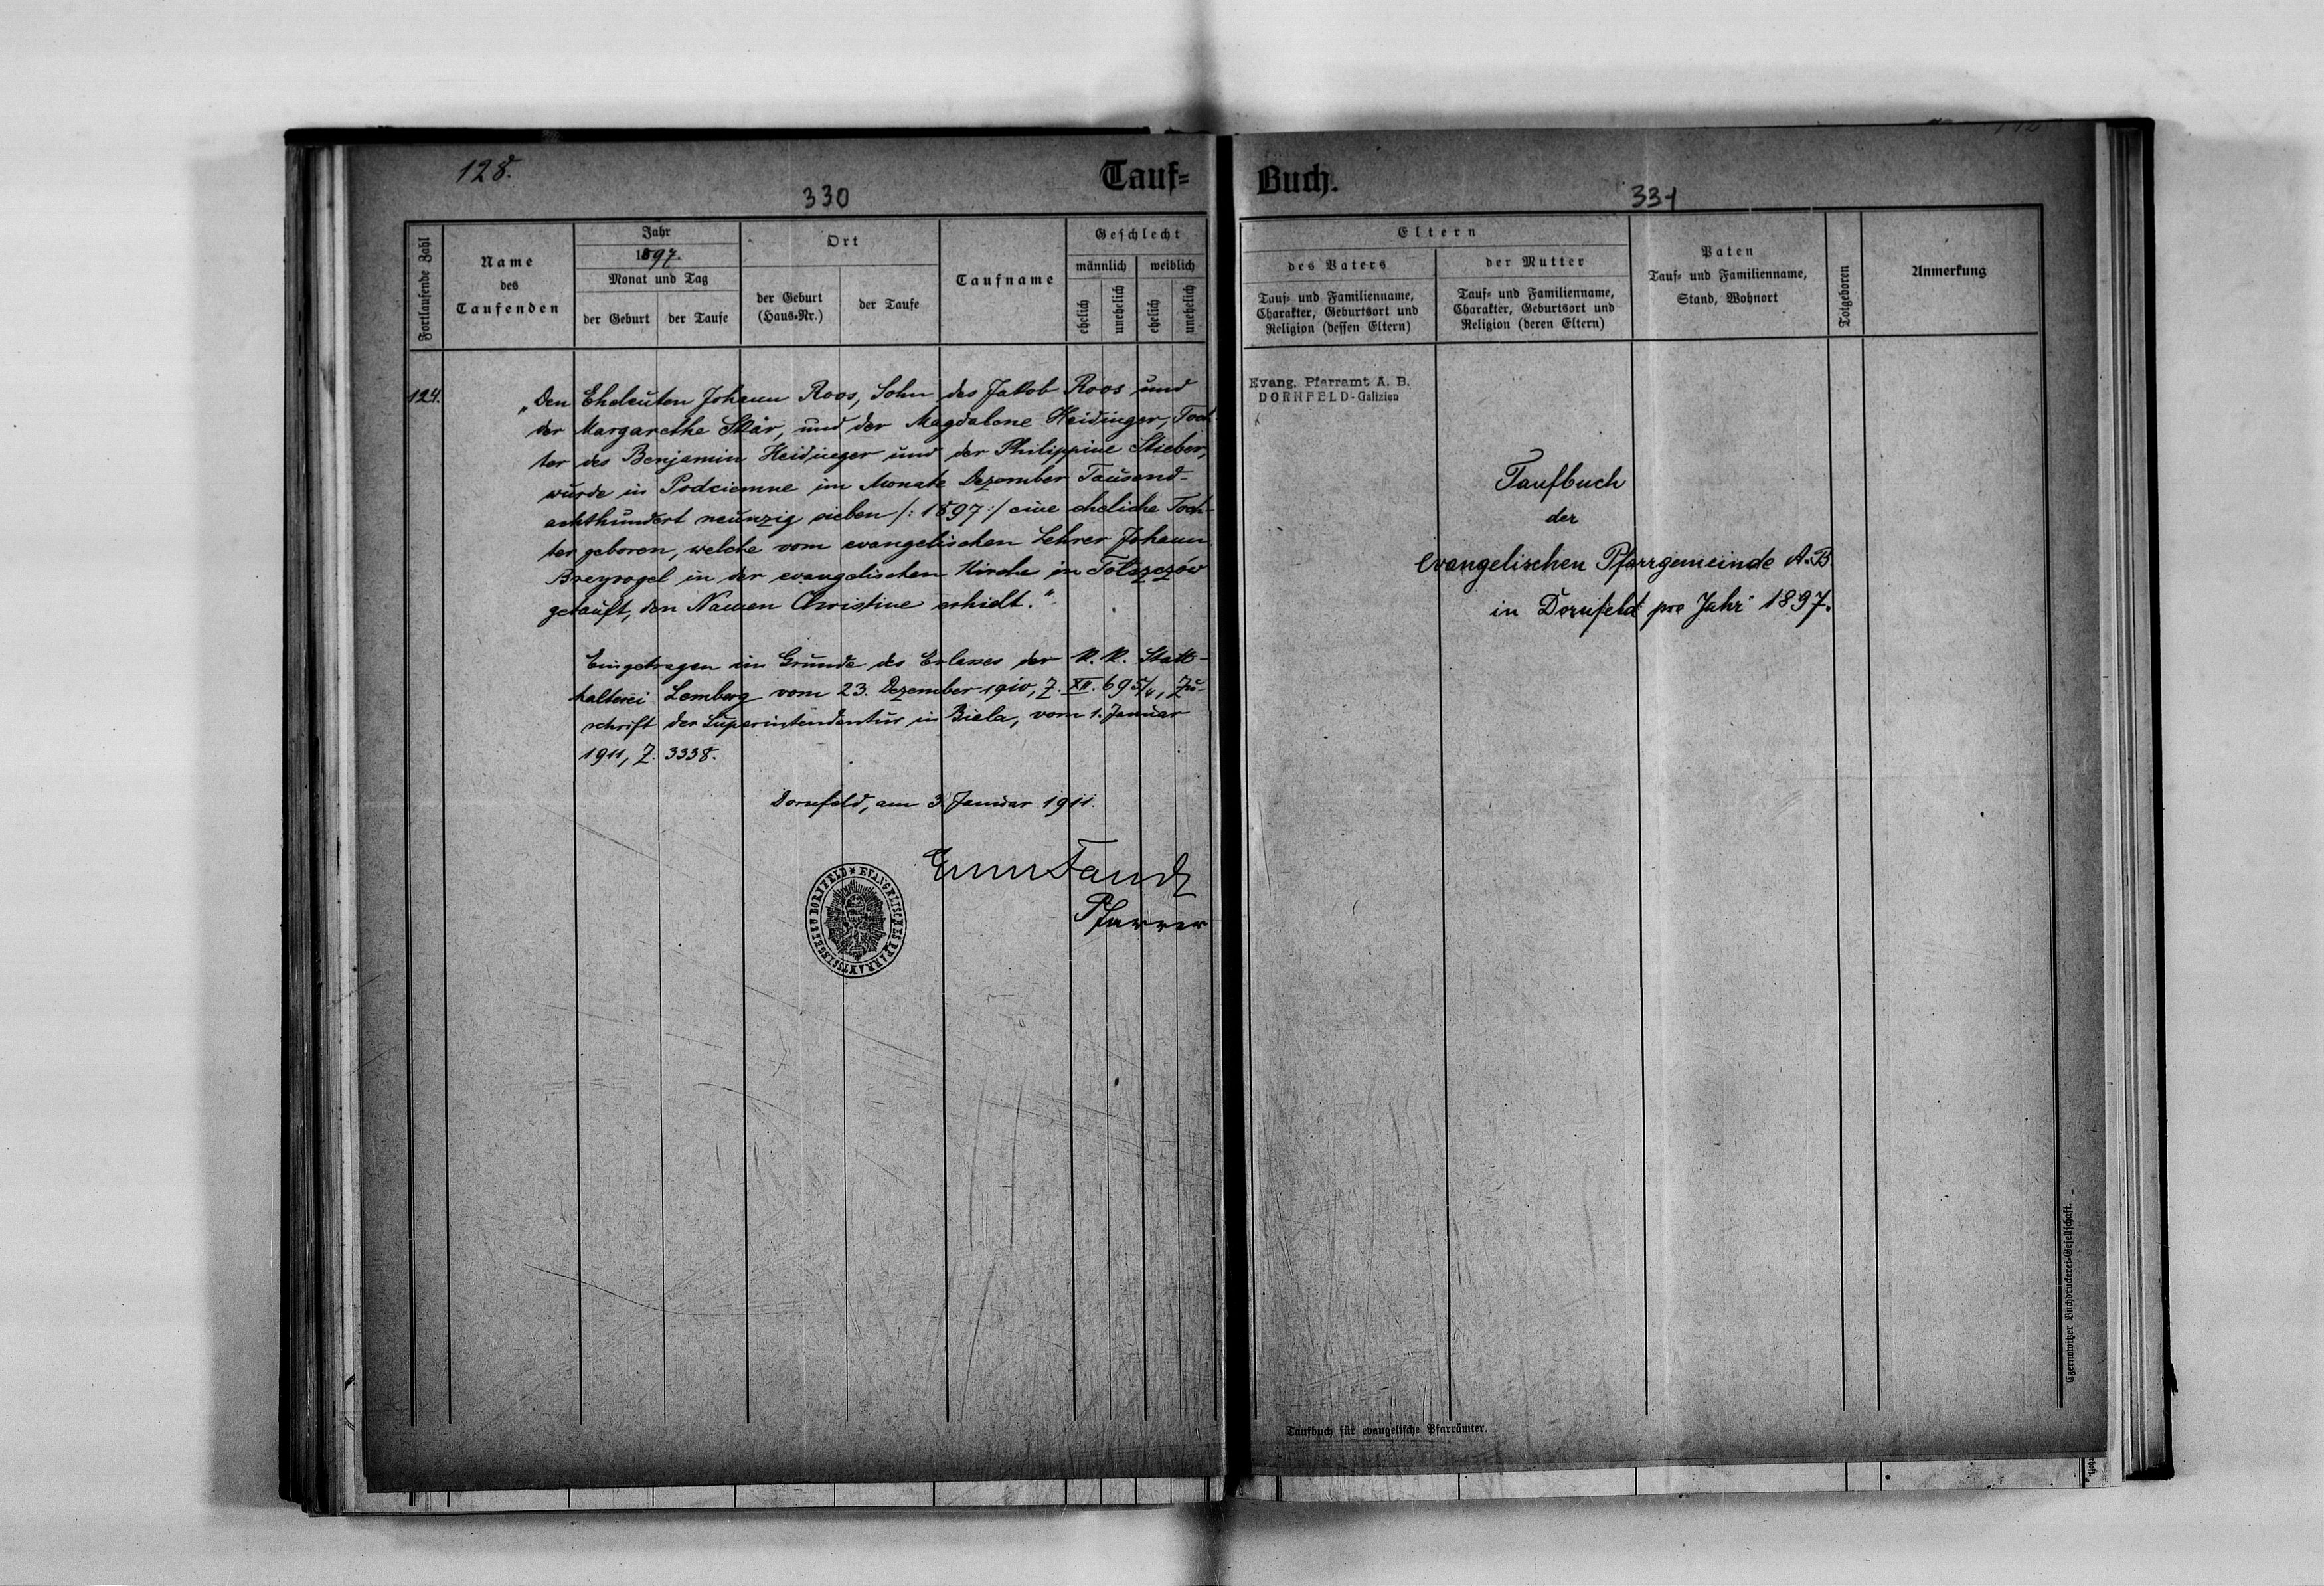 128.
330
Tauf=
Fortlaufende Zahl
Name
des
Taufenden
Jahr
1897.
Monat und Tag
der Geburt
der Taufe
Ort
der Geburt
(Haus=Nr.)
der Taufe
Taufname
Geschlecht
männlich
weiblich
ehelich
unehelich
ehelich
unehelich
124.
„Den Eheleuten Johann Roos, Sohn des Jakob Roos und
der Margarethe Skär, und der Magdalene Heidinger, Toch
ter des Benjamin Heidinger und der Philippine Stieber,
wurde in Podciemne im Monate Dezember Tausend-
achthundert neunzig sieben /: 1897 :/ eine eheliche Toch-
ter geboren, welche vom evangelischen Lehrer Johann
Breyvogel in der evangelischen Kirche in Tołszczów
getauft, den Namen Christine erhielt."
Eingetragen im Grunde des Erlasses der K. K. Statt-
halterei Lemberg vom 23. Dezember 1910, Z. XII. 695/4, Zu-
schrift der Superintendentur in Biala, vom 1. Januar
1911, Z. 3338.
Dornfeld, am 3. Januar 1911.
Pfarrer
Buch.
331
Eltern
des Vaters
Tauf= und Familienname,
Charakter, Geburtsort und
Religion (dessen Eltern)
der Mutter
Tauf= und Familienname,
Charakter, Geburtsort und
Religion (deren Eltern)
Paten
Tauf= und Familienname,
Stand, Wohnort
Totgeboren
Anmerkung
Evang. Pfarramt A. B.
DORNFELD-Galizien
Taufbuch
der
evangelischen Pfarrgemeinde A.B.
in Dornfeld pro Jahr 1897.
Taufbuch für evangelische Pfarrämter.
Czernowitzer Buchdruckerei=Gesellschaft.